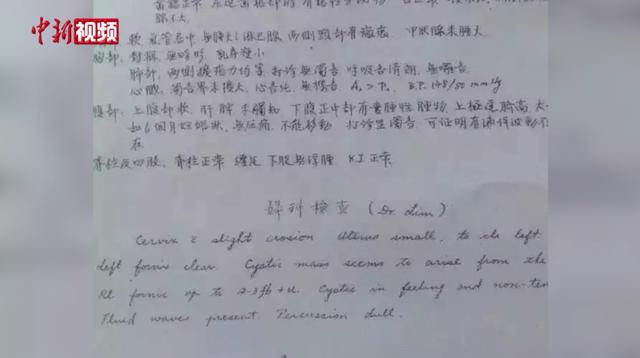 中新视频
膝不大
软 气管居中 无肿大淋巴腺 两侧颈部有瘢痕 甲状腺未肿大
胸部: 对称, 无畸形 乳房缩小
肺部. 两侧扩张力均等 叩诊无浊音 呼吸音清朗. 无啰音
心脏. 浊音界未扩大, 心音纯, 无杂音 A₂ > P₂ B.P. 148/80 mmHg
腹部: 上腹部软, 肝脾未触知 下腹正中部有囊肿性肿物 上极达脐高 大
如6个月妊娠状, 无压痛, 不能移动 叩诊呈浊音 可证明有液体波动
在
脊柱及四肢, 脊柱正常 缠足 下肢无浮肿 K.J 正常
妇科检查 (Dr. Lim)
Cervix c̄ slight erosion Uterus small, to the left
left fornix clear. Cystic mass seems to arise from the
Rt fornix up to 2-3 fb + U. Cystic in feeling and non-ten
Fluid waves present. Percussion dull.